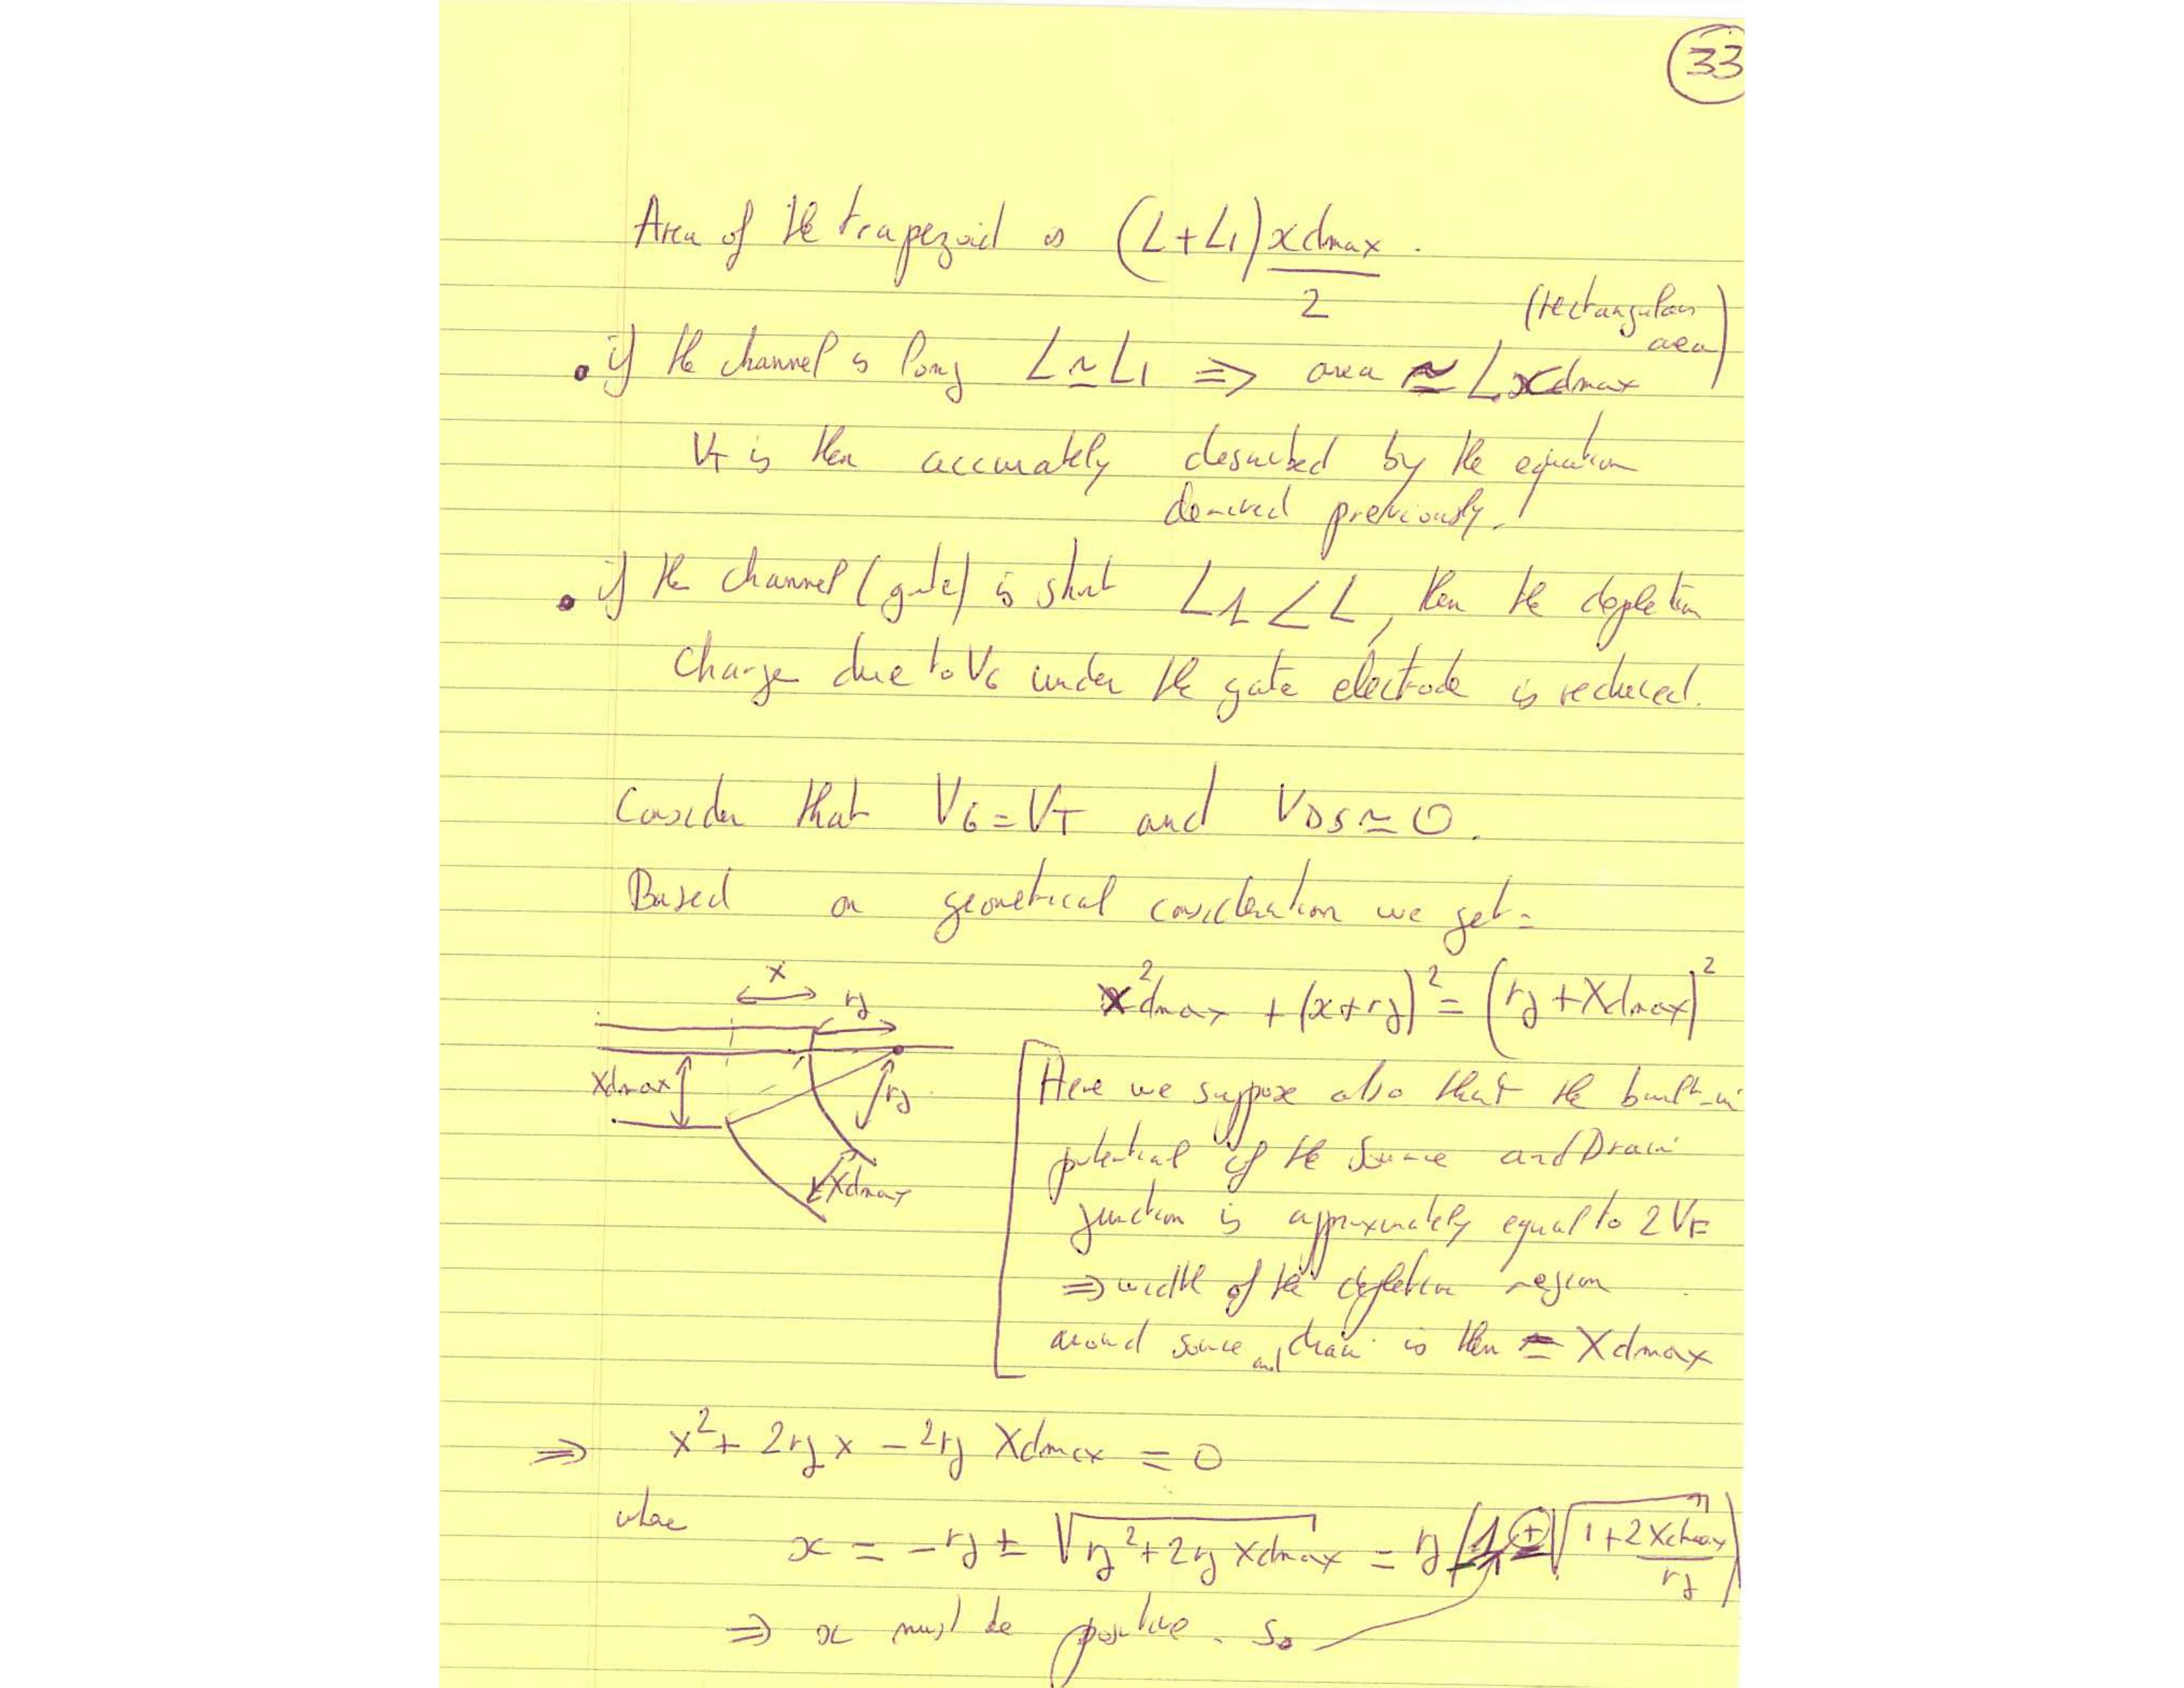 33
Area of the trapezoid is (L+L1) xdmax / 2 .
(rectangular area)
• if the channel is long L ≃ L1 ⇒ area ≃ L.xdmax
VT is then accurately described by the equation
derived previously.
• if the channel (gate) is short L1 < L, then the depletion
charge due to VG under the gate electrode is reduced.
Consider that VG = VT and VDS ≃ 0.
Based on geometrical consideration we get:
x²dmax + (x+rj)² = (rj + Xdmax)²
x
rj
Xdmax
rj
Xdmax
Here we suppose also that the built-in
potential of the Source and Drain
junction is approximately equal to 2VF
⇒ width of the depletion region
around source and drain is then = Xdmax
⇒ x² + 2rjx - 2rj Xdmax = 0
where x = -rj ± √(rj² + 2rj xdmax) = rj (-1 ± √(1 + 2 Xdmax / rj))
⇒ x must be positive. So